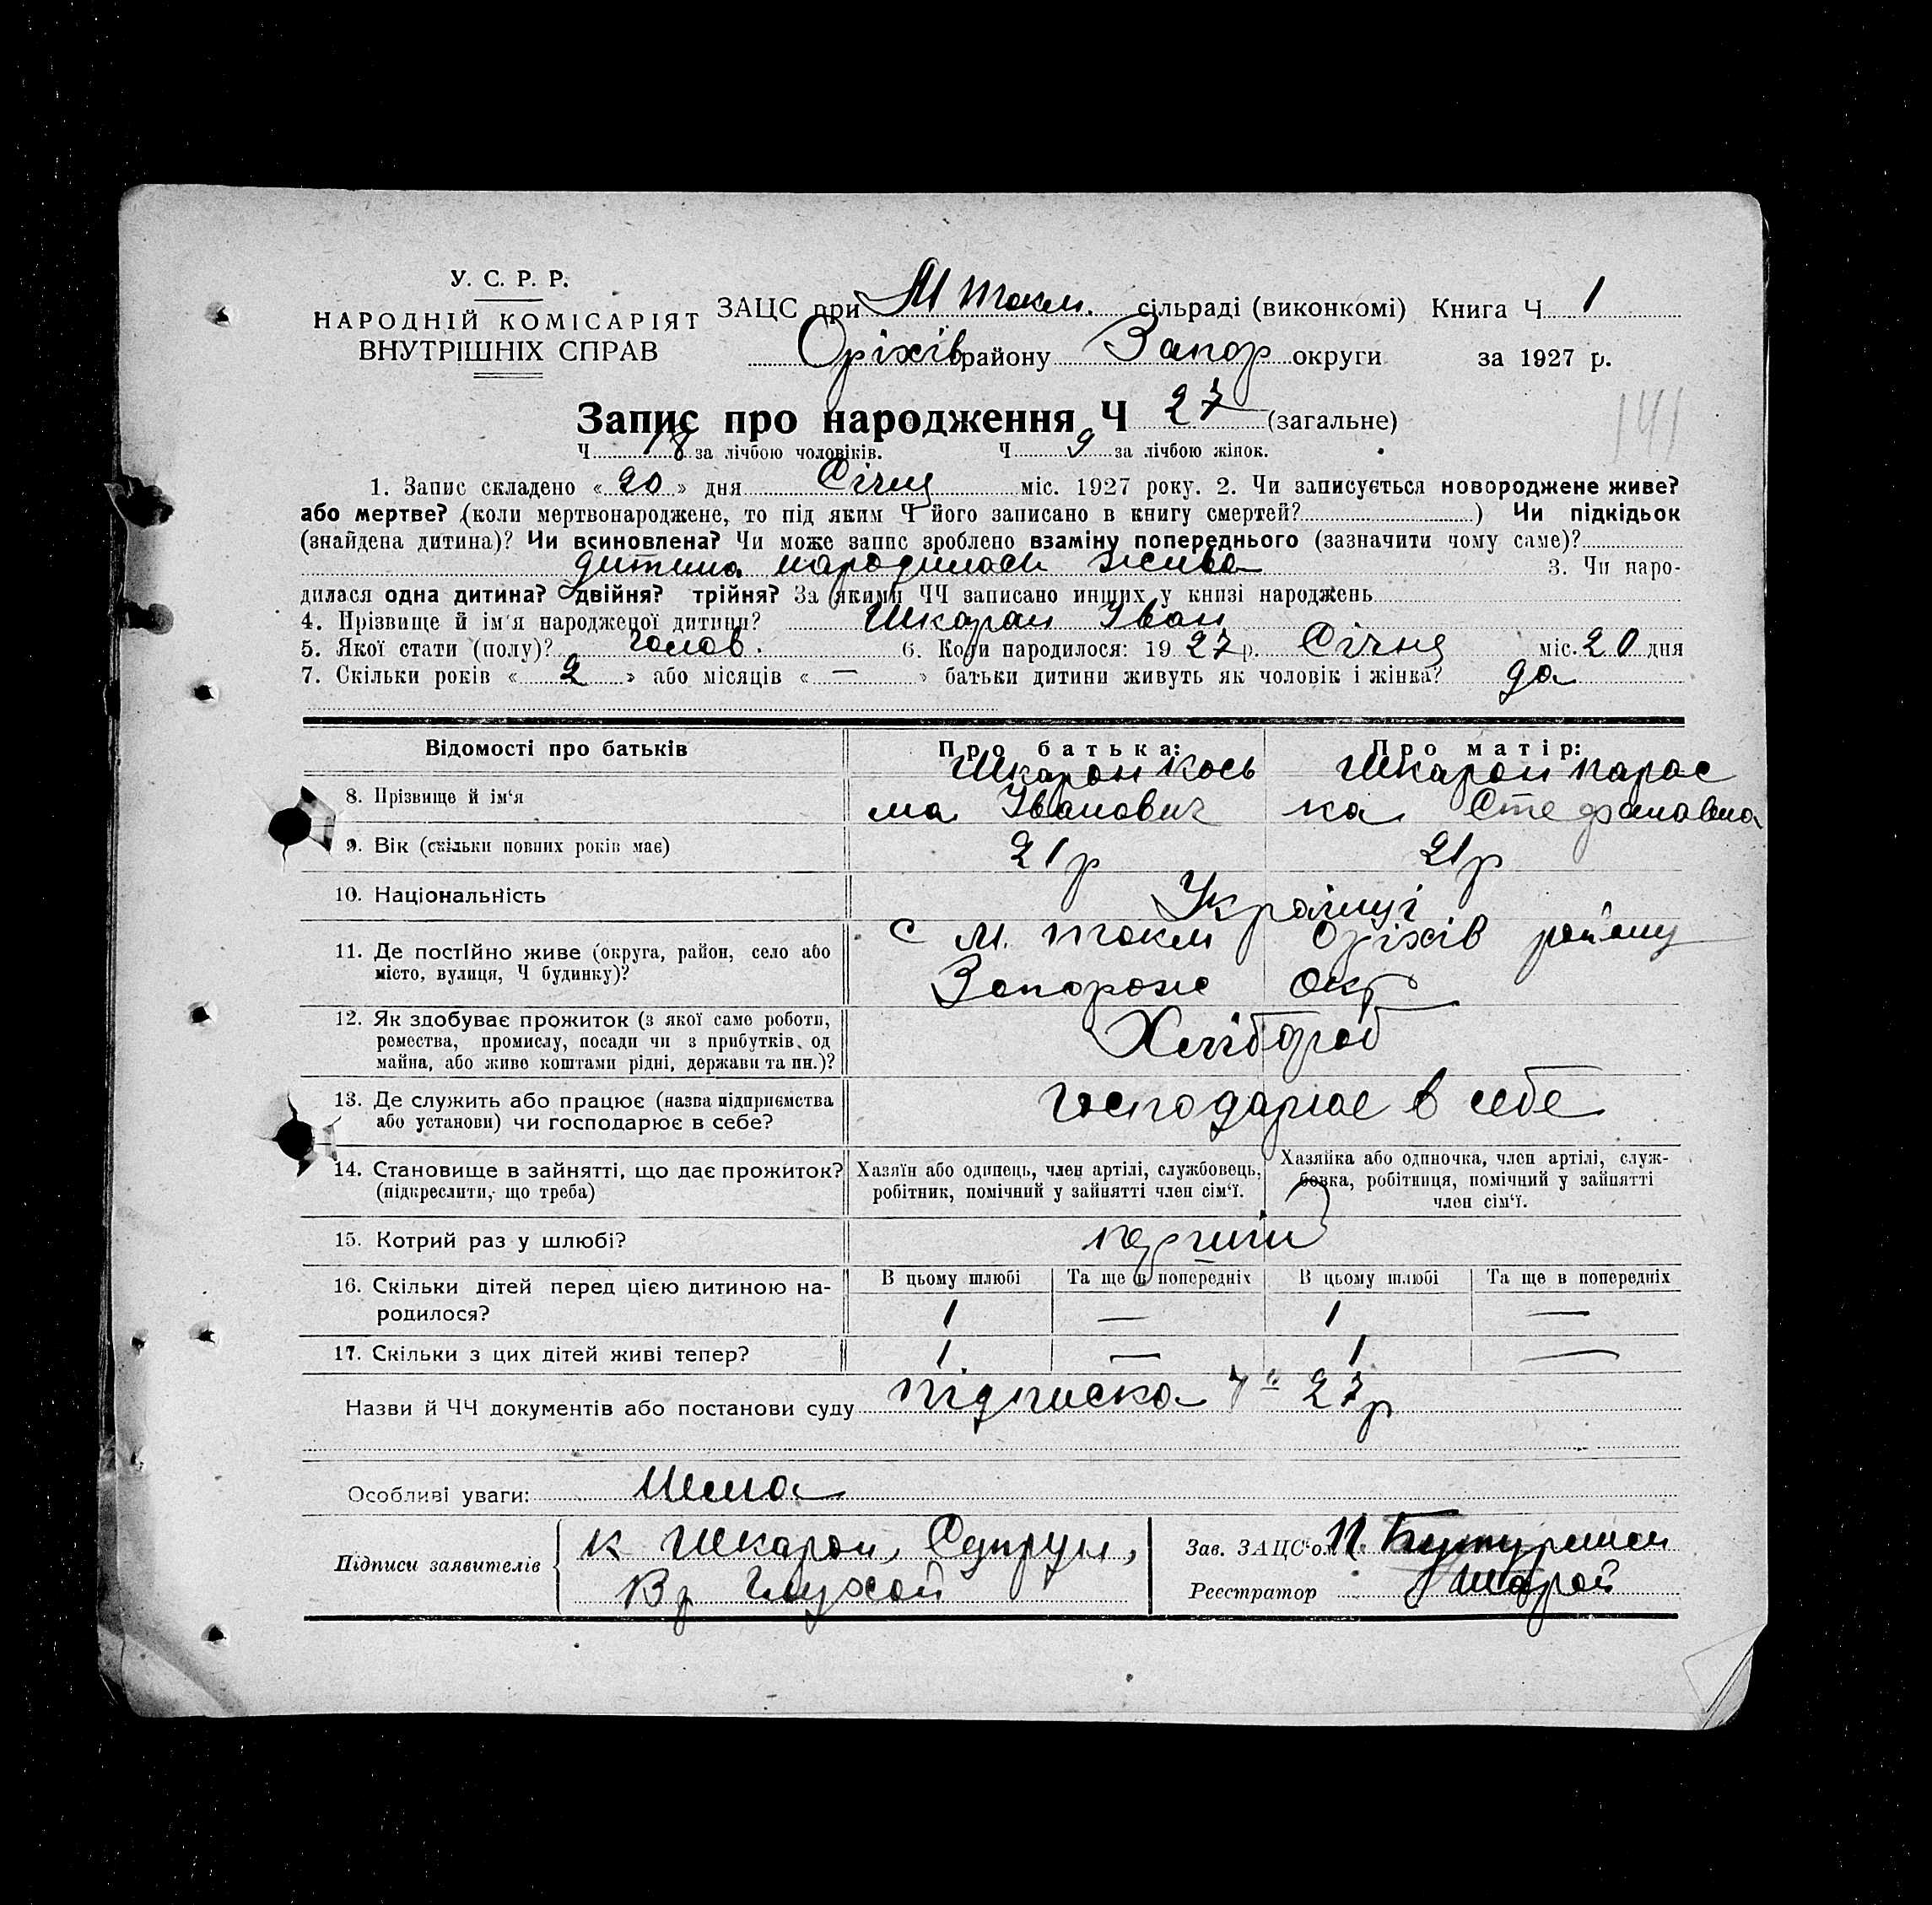 У. С. Р. Р.
НАРОДНІЙ КОМІСАРІЯТ
ВНУТРІШНІХ СПРАВ
ЗАЦС при М Токм. сільраді (виконкомі) Книга Ч 1
Оріхів району Запор округи за 1927 р.
Запис про народження Ч 27 (загальне)
141
Ч 18 за лічбою чоловіків. Ч 9 за лічбою жінок.
1. Запис складено « 20 » дня Січня міс. 1927 року. 2. Чи записується новороджене живе?
або мертве? (коли мертвонароджене, то під яким Ч його записано в книгу смертей? ) Чи підкідьок
(знайдена дитина)? Чи всиновлена? Чи може запис зроблено взаміну попереднього (зазначити чому саме)?
дитина народилась жива 3. Чи наро-
дилася одна дитина? двійня? трійня? За якими ЧЧ записано инших у книзі народжень
4. Прізвище й ім'я народженої дитини? Шкарон Іван
5. Якої стати (полу)? чолов. 6. Коли народилося: 19 27 р. Січня міс. 20 дня
7. Скільки років « 2 » або місяців « — » батьки дитини живуть як чоловік і жінка? да
Відомості про батьків Про батька: Про матір:
Шкарон Кось Шкарон Парас
8. Прізвище й ім'я ма Іванович ка Стефановна
9. Вік (скільки повних років має) 21 р 21 р
10. Національність Українці
11. Де постійно живе (округа, район, село або с М. Токм Оріхів району
місто, вулиця, Ч будинку)? Запорож окр
12. Як здобуває прожиток (з якої саме роботи,
ремества, промислу, посади чи з прибутків од Хлібороб
майна, або живе коштами рідні, держави та ин.)?
13. Де служить або працює (назва підприємства господарює в себе
або установи) чи господарює в себе?
14. Становище в зайнятті, що дає прожиток? Хазяїн або одинець, член артілі, службовець, Хазяйка або одиночка, член артілі, служ-
(підкреслити, що треба) робітник, помічний у зайнятті член сім'ї. бовка, робітниця, помічний у зайнятті
член сім'ї.
15. Котрий раз у шлюбі? перший
16. Скільки дітей перед цією дитиною на- В цьому шлюбі Та ще в попередніх В цьому шлюбі Та ще в попередніх
родилося? 1 — 1 —
17. Скільки з цих дітей живі тепер? 1 — 1 —
Назви й ЧЧ документів або постанови суду підписка 27 р
Особливі уваги: Нема
Підписи заявителів К Шкарон, Супрун, Зав. ЗАЦС'ом
Реєстратор